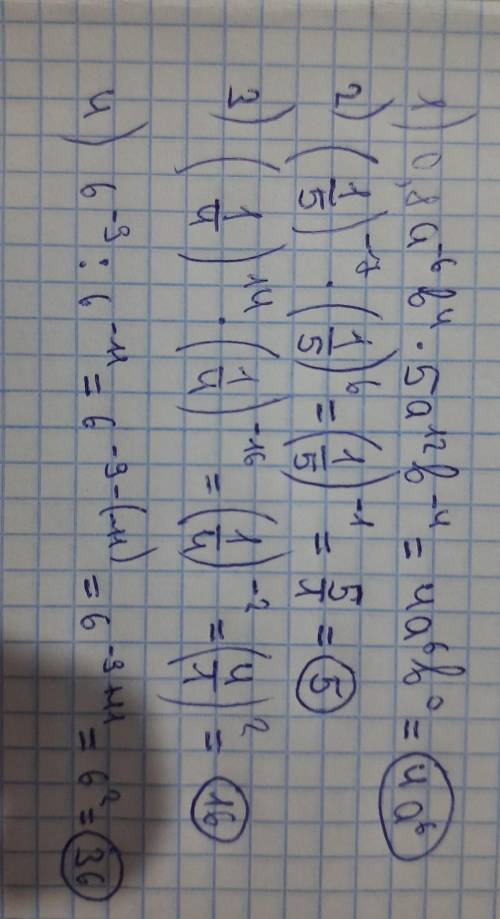 1) 0,8a⁻⁶b⁴ · 5a¹²b⁻⁴ = 4a⁶b⁰ = 4a⁶
2) (1/5)⁻⁷ · (1/5)⁶ = (1/5)⁻¹ = 5/1 = 5
3) (1/4)¹⁴ · (1/4)⁻¹⁶ = (1/4)⁻² = (4/1)² = 16
4) 6⁻⁹ : 6⁻¹¹ = 6⁻⁹⁻⁽⁻¹¹⁾ = 6⁻⁹⁺¹¹ = 6² = 36